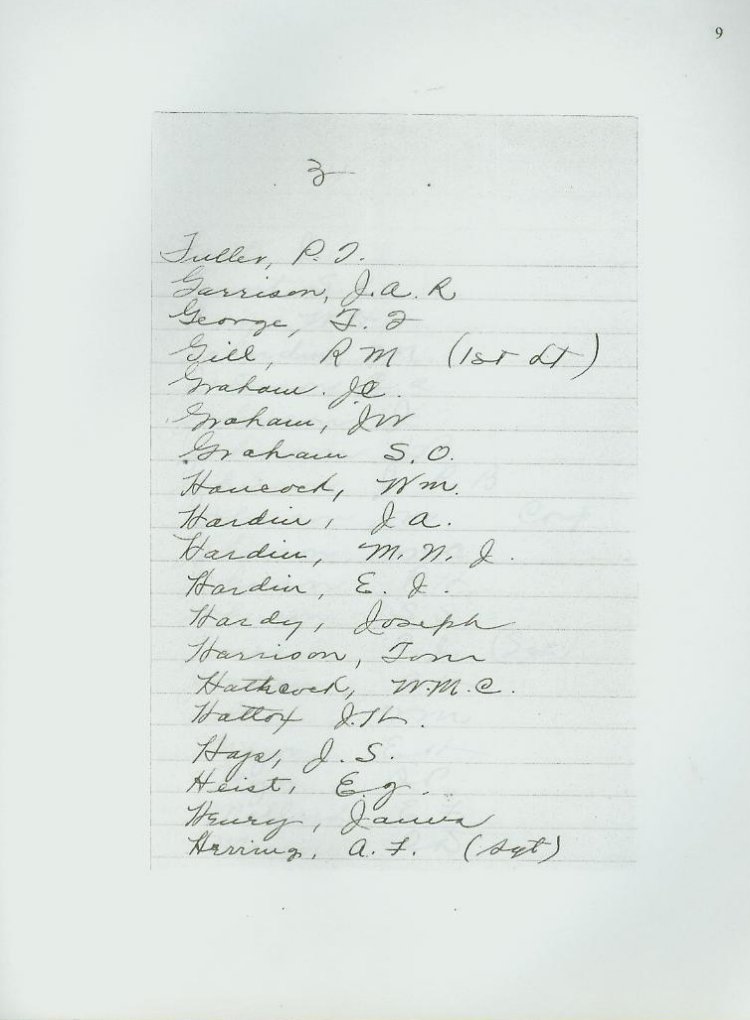 9
3
Fuller, P. T.
Garrison, J. A. R
George, T. J
Gill, R M (1st Lt)
Graham. J.C.
Graham, J W
Graham S. O.
Hancock, Wm.
Hardin, J A.
Hardin, M. N. J.
Hardin, E. J.
Hardy, Joseph
Harrison, Tom
Hathcock, W.M.C.
Hattox J.H.
Hays, J. S.
Heist, E. J.
Henry, James
Herring, A. F. (Sgt)